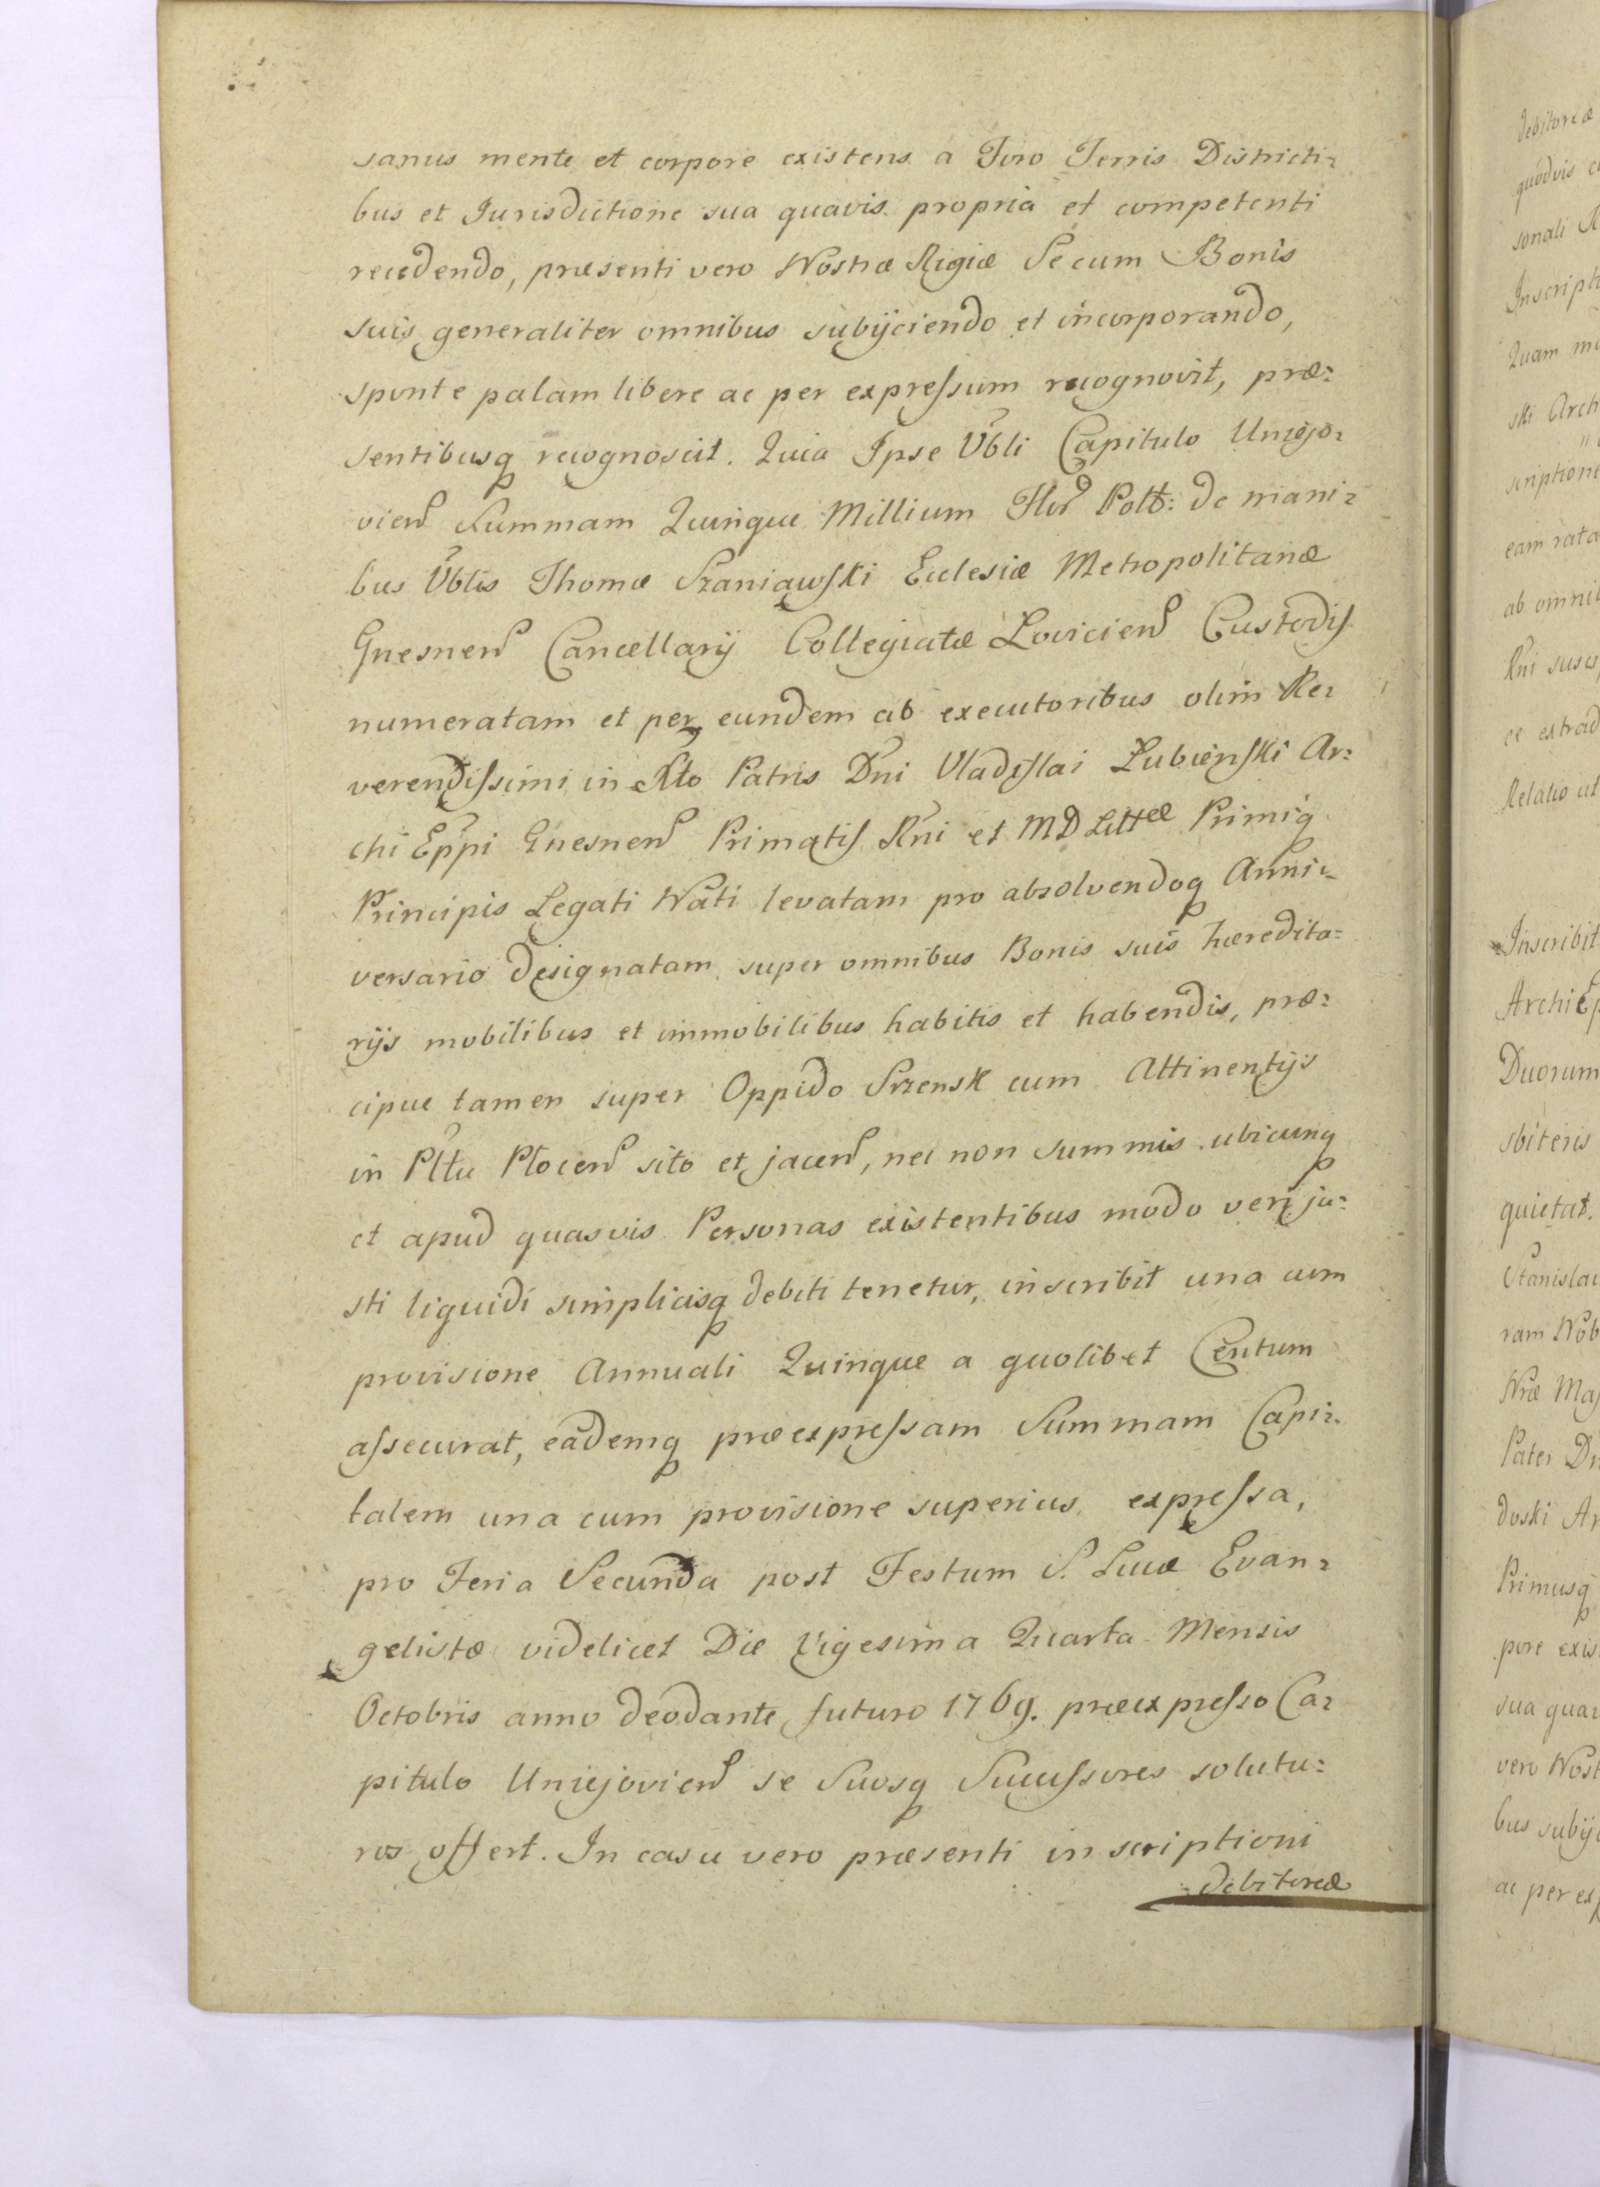 sanus mente et corpore existens a Foro Terris Districti=
bus et Jurisdictione sua quavis propria et competenti
recedendo, præsenti vero Nostræ Regiæ Se cum Bonis
suis generaliter omnibus subijciendo et incorporando,
sponte palam libere ac per expressum recognovit, præ=
sentibusq recognoscit. Quia Ipse Vbli Capitulo Uniejo=
vien Summam Quinque Millium Flor Polł: de mani=
bus Vblis Thomæ Szaniawski Ecclesiæ Metropolitanæ
Gnesnen Cancellarij Collegiatæ Lovicien Custodis
numeratam et per eundem ab executoribus olim Re=
verendissimi in Xto Patris Dni Vladislai Łubienski Ar=
chi Eppi Gnesnen Primatis Rni et MD Littæ Primiq
Principis Legati Nati levatam pro absolvendoq Anni=
versario designatam super omnibus Bonis suis hæredita=
rijs mobilibus et immobilibus habitis et habendis, præ=
cipue tamen super Oppido Szrensk cum Attinentijs
in Płtu Płocen sito et jacen, nec non summis ubicunq
et apud quasvis Personas existentibus modo veri ju=
sti liquidi simplicisq debiti tenetur, inscribit una cum
provisione Annuali Quinque a quolibet Centum
assecurat, eademq præexpressam Summam Capi=
talem una cum provisione superius expressa,
pro Feria Secunda post Festum S. Lucæ Evan=
gelistæ videlicet Die Vigesima Quarta Mensis
Octobris anno deodante futuro 1769. præexpresso Ca=
pitulo Uniejovien se Suosq Successores solutu=
ros offert. In casu vero præsenti inscriptioni
debitoreæ
debitoreæ
quodvis
sonali
Inscripti
Quam
ski Arch
scriptione
eam rata
ab omni
Rni
ce extrad
Relatio ut
Inscribit
Archi
Duorum
sbiteris
quietat.
Stanislai
ram Nob
Nræ Maj
Pater
doski
Primusq
pore exis
sua
vero Nost
bus subij
ac per exp